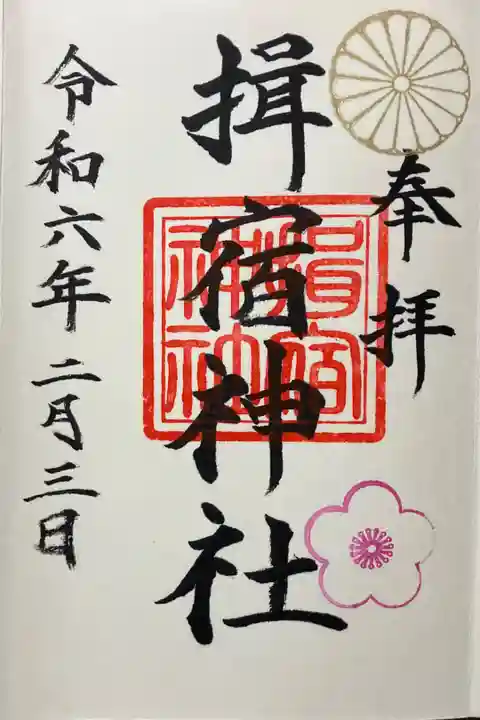 奉拝
揖宿神社
揖宿
神社
令和六年二月三日